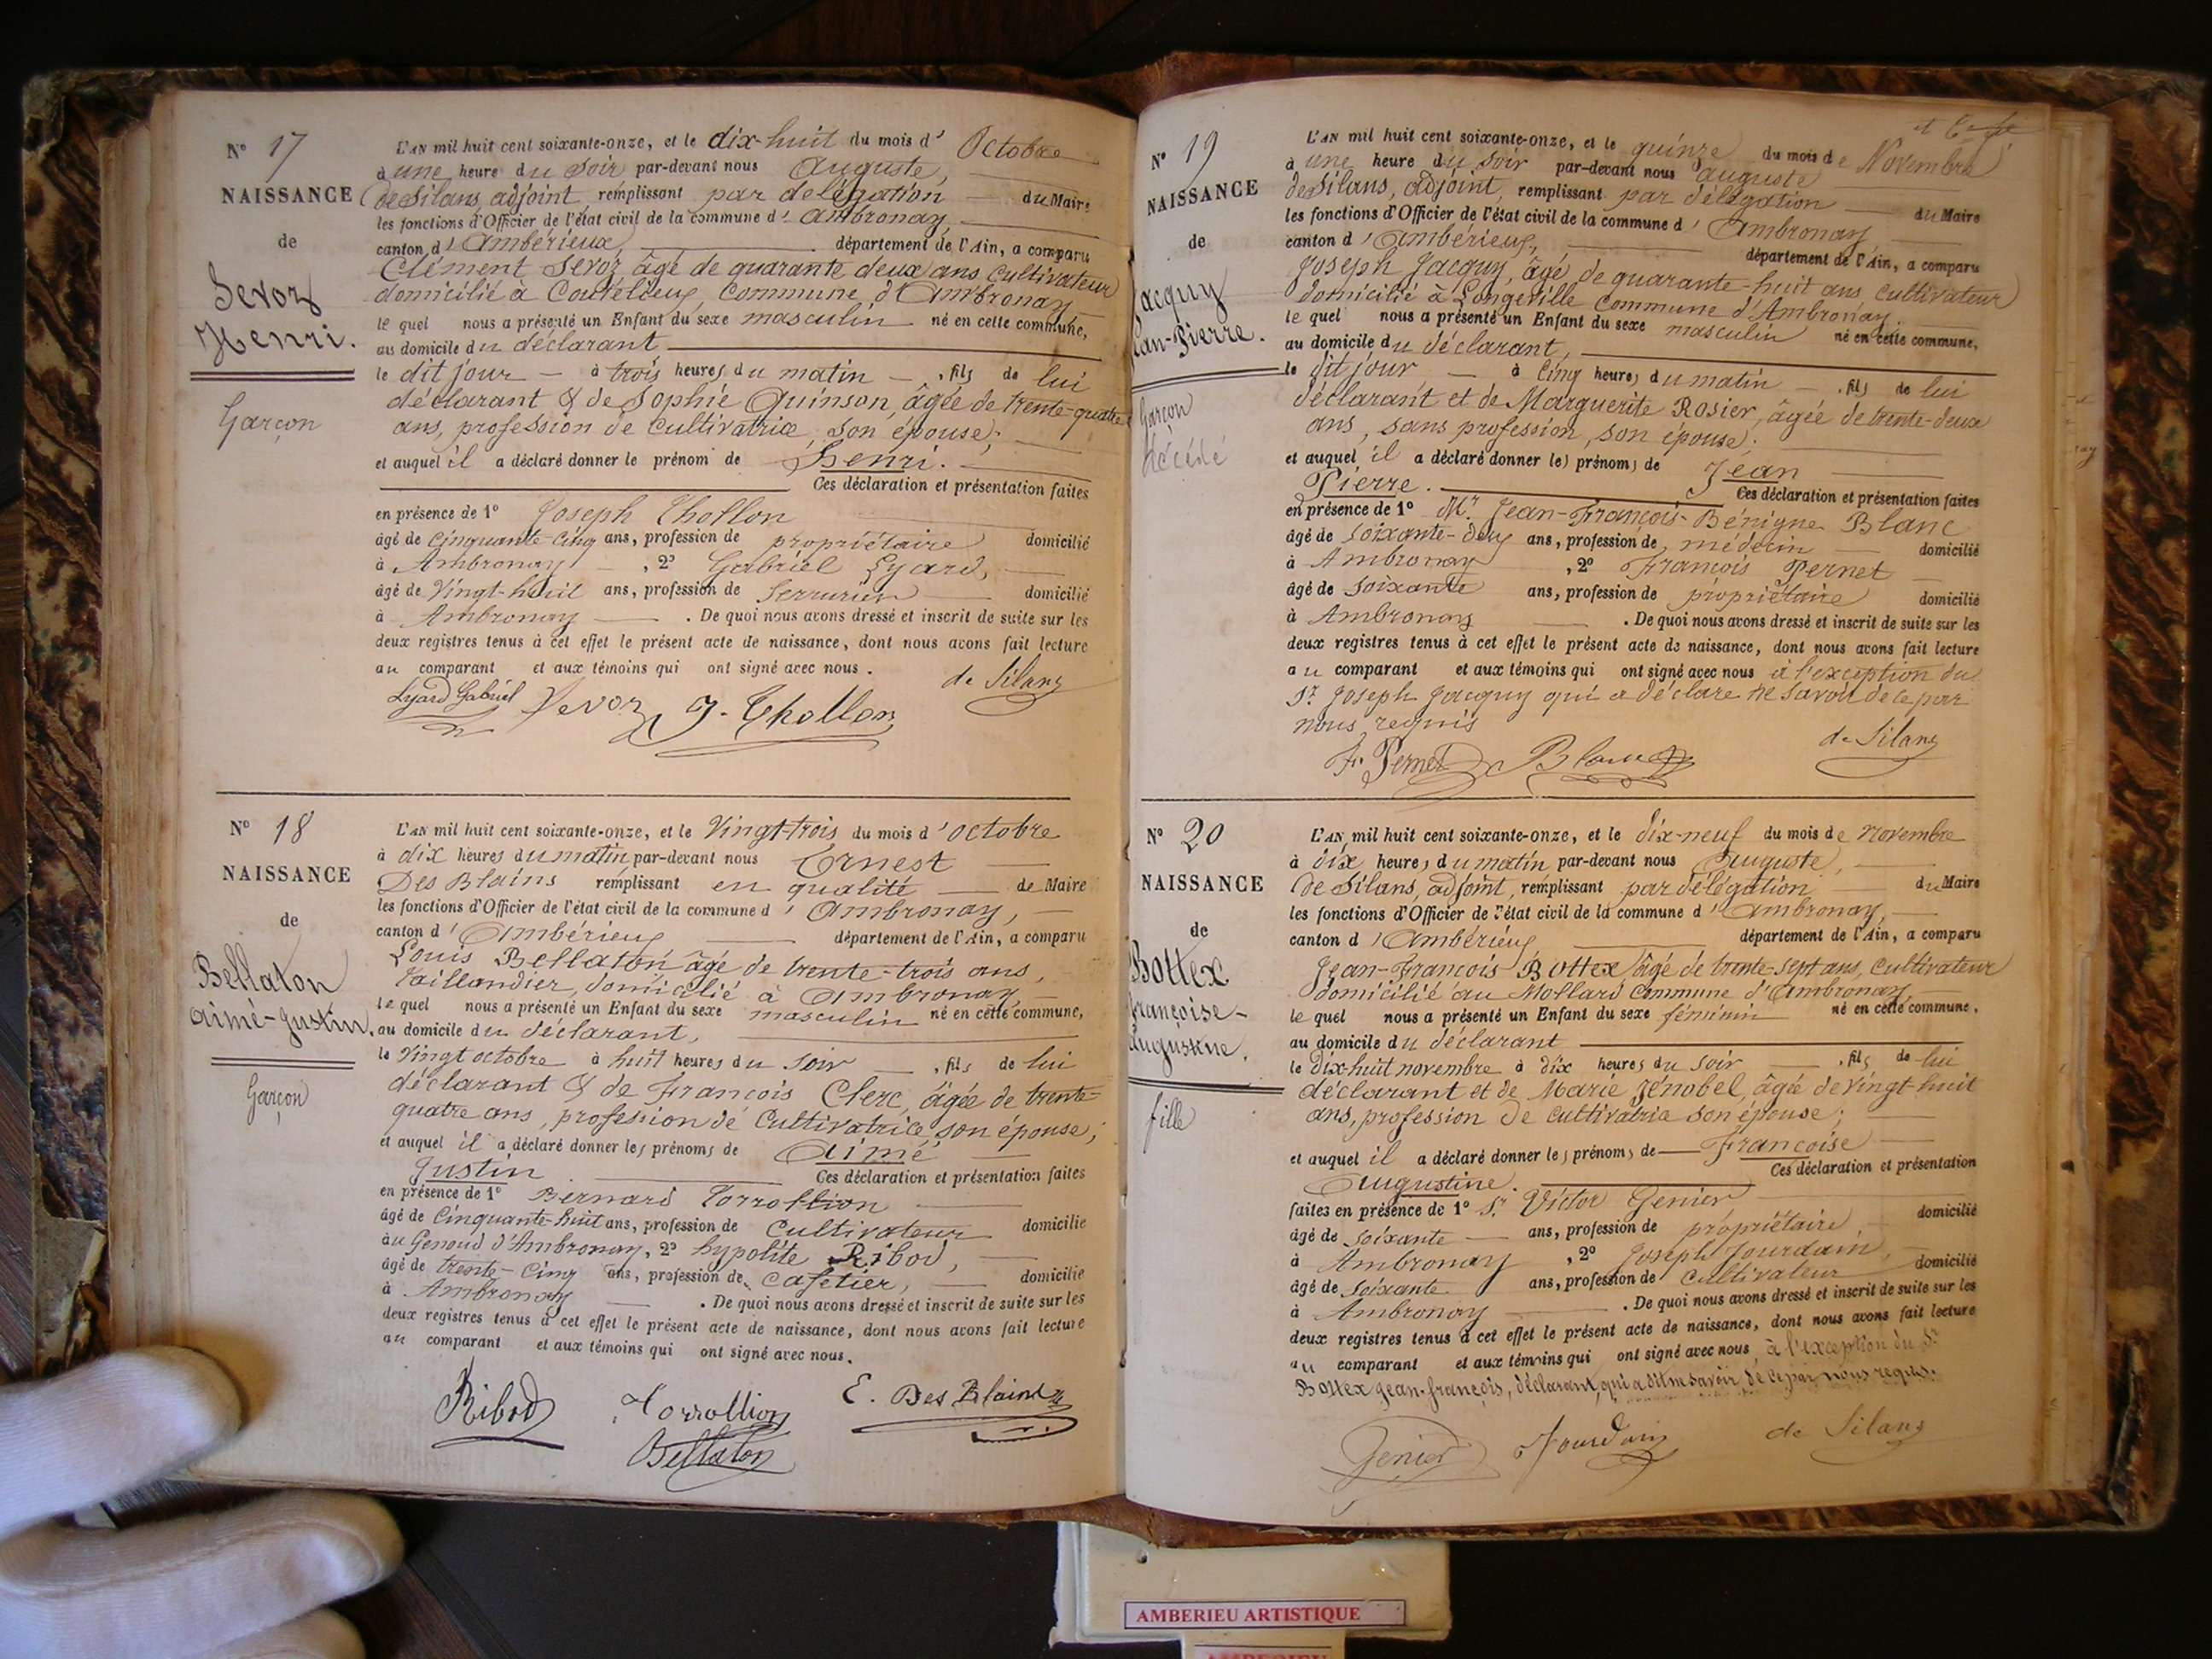 N° 17
NAISSANCE
de
Sevoz
Henri.
Garçon
L'AN mil huit cent soixante-onze, et le dix-huit du mois d' Octobre
à une heure du soir par-devant nous Auguste,
de Silans, adjoint remplissant par délégation du Maire
les fonctions d'Officier de l'état civil de la commune d' Ambronay,
canton d' Ambérieux, département de l'Ain, a comparu
Clément Sevoz, âgé de quarante deux ans, cultivateur
domicilié à Coutelieux, commune d'Ambronay
le quel nous a présenté un Enfant du sexe masculin né en cette commune,
au domicile du déclarant
le dit jour à trois heures du matin, fils de lui
déclarant & de Sophie Quinson, âgée de trente-quatre
ans, profession de cultivatrice, son épouse;
et auquel il a déclaré donner le prénom de Henri.
Ces déclaration et présentation faites
en présence de 1° Joseph Thollon
âgé de cinquante-cinq ans, profession de propriétaire domicilié
à Ambronay, 2° Gabriel Lyard,
âgé de Vingt-huit ans, profession de Serrurier domicilié
à Ambronay. De quoi nous avons dressé et inscrit de suite sur les
deux registres tenus à cet effet le présent acte de naissance, dont nous avons fait lecture
au comparant et aux témoins qui ont signé avec nous.
de Silans
Lyard Gabriel Sevoz J. Thollon
N° 18
NAISSANCE
de
Bellaton
Aimé-Justin.
Garçon
L'AN mil huit cent soixante-onze, et le Vingt-trois du mois d'octobre
à dix heures du matin par-devant nous Ernest
Des Blains remplissant en qualité de Maire
les fonctions d'Officier de l'état civil de la commune d' Ambronay,
canton d' Ambérieux département de l'Ain, a comparu
Louis Bellaton âgé de trente-trois ans,
Taillandier, domicilié à Ambronay,
le quel nous a présenté un Enfant du sexe masculin né en cette commune,
au domicile du déclarant,
le Vingt octobre à huit heures du soir, fils de lui
déclarant & de François Clerc, âgée de trente-
quatre ans, profession de Cultivatrice, son épouse;
et auquel il a déclaré donner les prénoms de Aimé
Justin Ces déclaration et présentation faites
en présence de 1° Bernard Torrollion
âgé de Cinquante-huit ans, profession de Cultivateur domicilié
au Genoud d'Ambronay, 2° hypolite Ribod,
âgé de trente-cinq ans, profession de Cafetier, domicilié
à Ambronay. De quoi nous avons dressé et inscrit de suite sur les
deux registres tenus à cet effet le présent acte de naissance, dont nous avons fait lecture
au comparant et aux témoins qui ont signé avec nous.
Ribod Torrollion E. Des Blains
Bellaton
N° 19
NAISSANCE
de
Jacquy
Jean-Pierre.
Garçon
décédé
L'AN mil huit cent soixante-onze, et le quinze du mois de Novembre
à une heure du soir par-devant nous Auguste
de Silans, adjoint, remplissant par délégation du Maire
les fonctions d'Officier de l'état civil de la commune d' Ambronay
canton d' Ambérieux, département de l'Ain, a comparu
Joseph Jacquy, âgé de quarante-huit ans, cultivateur
domicilié à Longeville Commune d'Ambronay
le quel nous a présenté un Enfant du sexe masculin né en cette commune,
au domicile du déclarant,
le dit jour à Cinq heures du matin, fils de lui
déclarant et de Marguerite Rosier, âgée de trente-deux
ans, sans profession, son épouse;
et auquel il a déclaré donner les prénoms de Jean
Pierre. Ces déclaration et présentation faites
en présence de 1° Mr. Jean-François-Bénigne Blanc
âgé de soixante-deux ans, profession de médecin domicilié
à Ambronay, 2° François Pernet
âgé de soixante ans, profession de propriétaire domicilié
à Ambronay. De quoi nous avons dressé et inscrit de suite sur les
deux registres tenus à cet effet le présent acte de naissance, dont nous avons fait lecture
au comparant et aux témoins qui ont signé avec nous à l'exception du
Sr. Joseph Jacquy qui a déclaré ne savoir de ce par
nous requis
de Silans
F. Pernet Blanc
N° 20
NAISSANCE
de
Bottex
Françoise-
Augustine.
fille
L'AN mil huit cent soixante-onze, et le dix-neuf du mois de novembre
à dix heures du matin par-devant nous Auguste,
de Silans, adjoint, remplissant par délégation du Maire
les fonctions d'Officier de l'état civil de la commune d' Ambronay,
canton d' Ambérieux département de l'Ain, a comparu
Jean-François Bottex âgé de trente-sept ans, cultivateur
domicilié au Mollard Commune d'Ambronay,
le quel nous a présenté un Enfant du sexe féminin né en cette commune,
au domicile du déclarant
le dix-huit novembre à dix heures du soir, fils de lui
déclarant et de Marie Jénobel, âgée de vingt-huit
ans, profession de cultivatrice son épouse;
et auquel il a déclaré donner les prénoms de Françoise
Augustine. Ces déclaration et présentation
faites en présence de 1° Sr. Victor Genier
âgé de soixante ans, profession de propriétaire domicilié
à Ambronay, 2° Joseph Jourdain,
âgé de soixante ans, profession de cultivateur domicilié
à Ambronay. De quoi nous avons dressé et inscrit de suite sur les
deux registres tenus à cet effet le présent acte de naissance, dont nous avons fait lecture
au comparant et aux témoins qui ont signé avec nous à l'exception du Sr
Bottex Jean-françois, déclarant, qui a dit ne savoir de ce par nous requis.
Genier Jourdain de Silans
AMBERIEU ARTISTIQUE